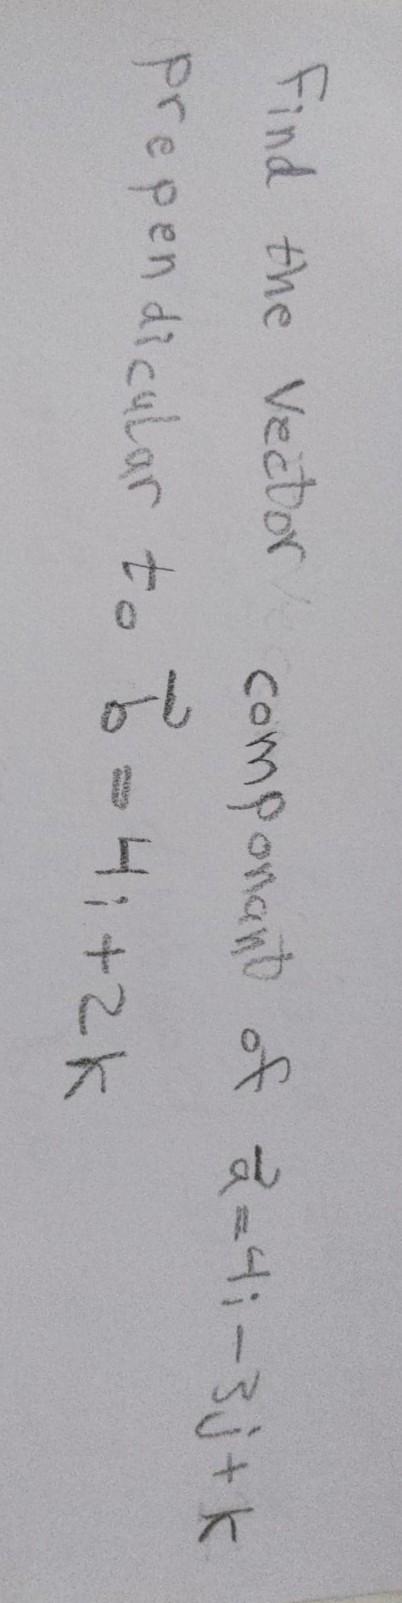 Find the vector componant of a⃗=4i-3j+k
prependicular to b⃗=4i+2k